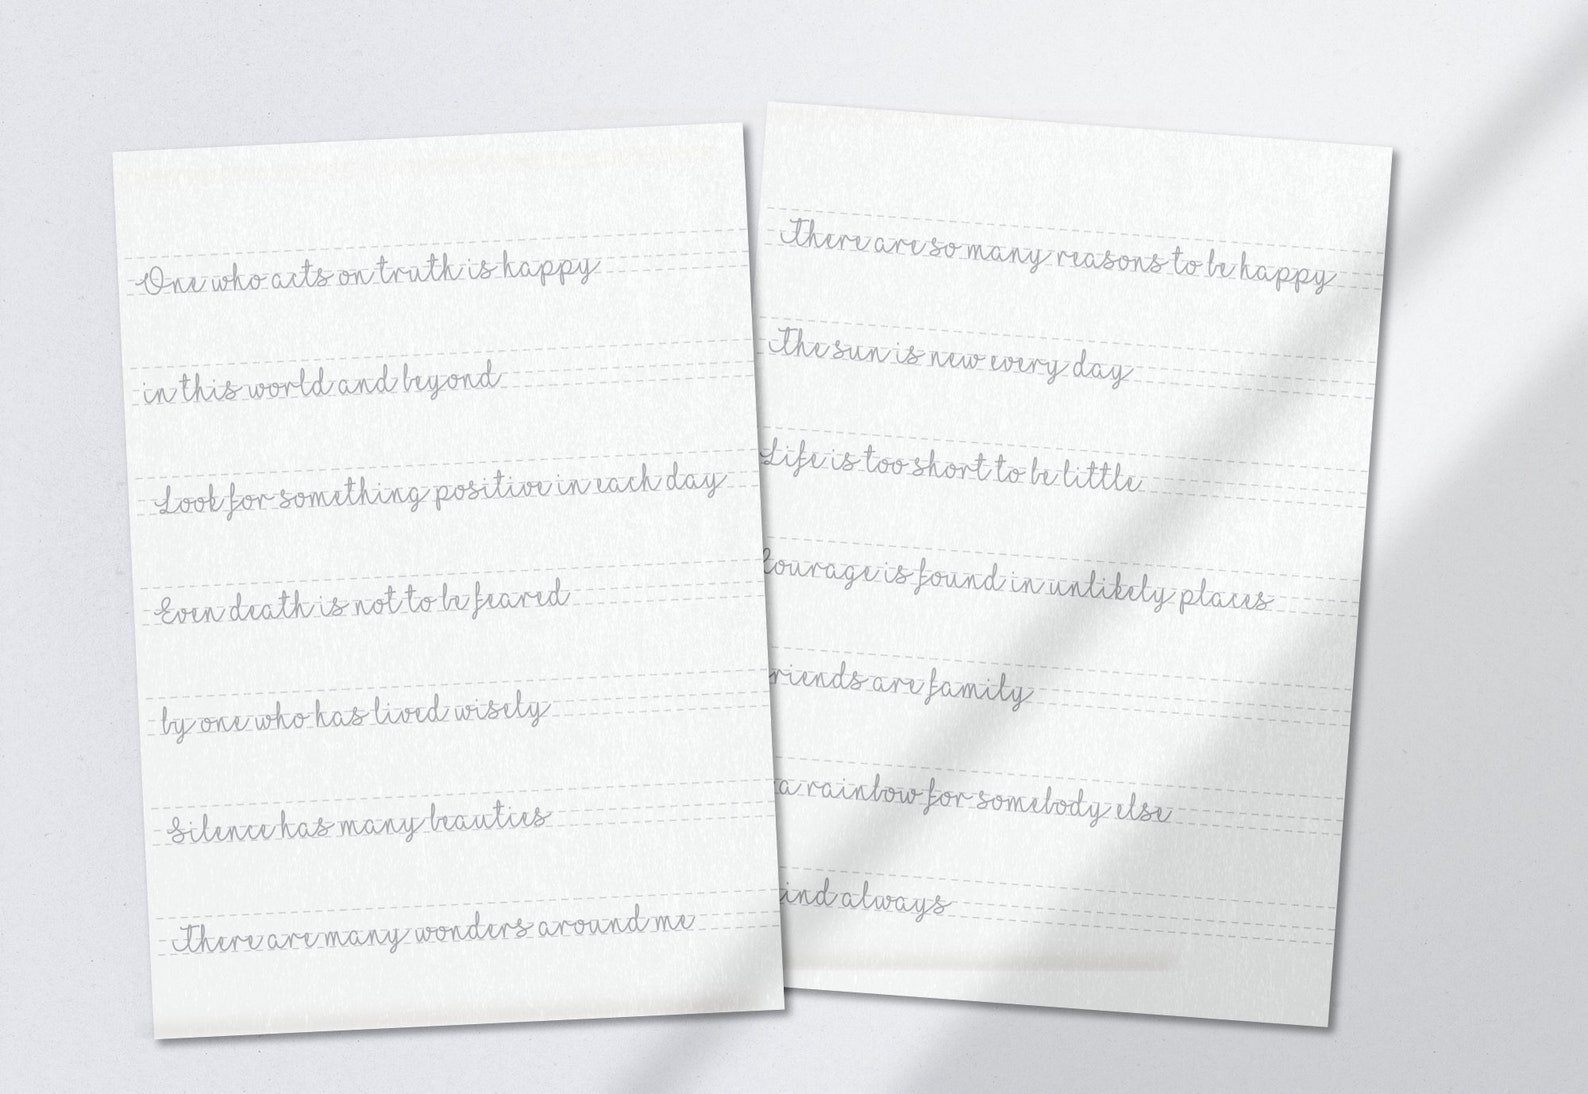 One who acts on truth is happy
in this world and beyond
Look for something positive in each day
Even death is not to be feared
by one who has lived wisely
Silence has many beauties
There are many wonders around me
There are so many reasons to be happy
The sun is new every day
Life is too short to be little
Courage is found in unlikely places
riends are family
a rainbow for somebody else
ind always